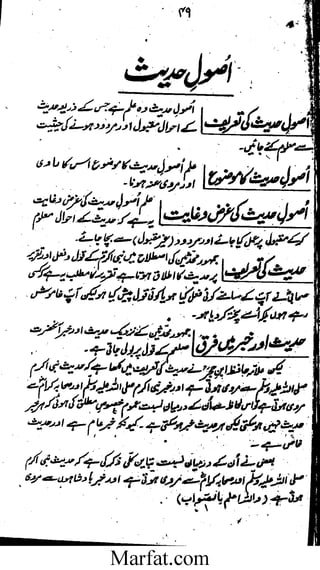 ۴۹
اُصولِ حدیث
اصولِ حدیث کی تعریف
اُصولِ حدیث وہ علم ہے جس کے ذریعہ حدیث
کے احوال مقبول اور مردود ہونے کی حیثیت
سے معلوم کئے جائیں۔
اُصولِ حدیث کا موضوع
علم اُصولِ حدیث کا موضوع اس کا راوی
اور مروی عنہ ہونا۔
اُصولِ حدیث کی غرض و غایت
اُصولِ حدیث کی غرض و غایت
یہ ہے کہ حدیث کے احوال معلوم
کر کے مقبول پر عمل کیا جائے اور مردود (غیر مقبول) سے بچا جائے۔
حدیث کی تعریف
جمہور محدثین کی اصطلاح میں نبی اکرم کے قول و فعل اور تقریر
پر حدیث کا اطلاق ہوتا ہے تقریر کا مطلب یہ ہے کہ کسی
صحابی نے آپ کے سامنے کوئی فعل کیا ہو یا کوئی قول پیش کیا ہو لیکن آپ خاموش
رہے ہوں
حدیث اور خبر میں فرق
جمہور محدثین کے نزدیک حدیث اور خبر آنحضرت
صلعم کے قول پر بولی جاتی ہے۔
لیکن علامہ حافظ ابن حجرؒ نے حدیث کی تعریف میں لکھا ہے کہ حدیث نبی اکرم
صلی اللہ علیہ وسلم سے مروی ہوتی ہے اور خبر نبی اکرم صلی اللہ علیہ وسلم اور صحابہ کرامؓ سے
مروی ہوتی ہے تو اس لحاظ سے ان کے درمیان نسبت عموم خصوص مطلق کی ہوگی کہ ہر خبر
حدیث نہیں ہو سکتی لیکن ہر حدیث خبر ہو سکتی ہے۔ کیونکہ خبر عام ہے اور حدیث
خاص ہے۔
بعض نے ان کے درمیان نسبت تباین کلی ذکر کی ہے کہ حدیث نبی اکرم
صلی اللہ علیہ وسلم اور صحابہ کرامؓ سے مروی ہوتی ہے اور خبر بادشاہوں سے مروی
ہوتی ہے (واللہ اعلم بالصواب)
Marfat.com